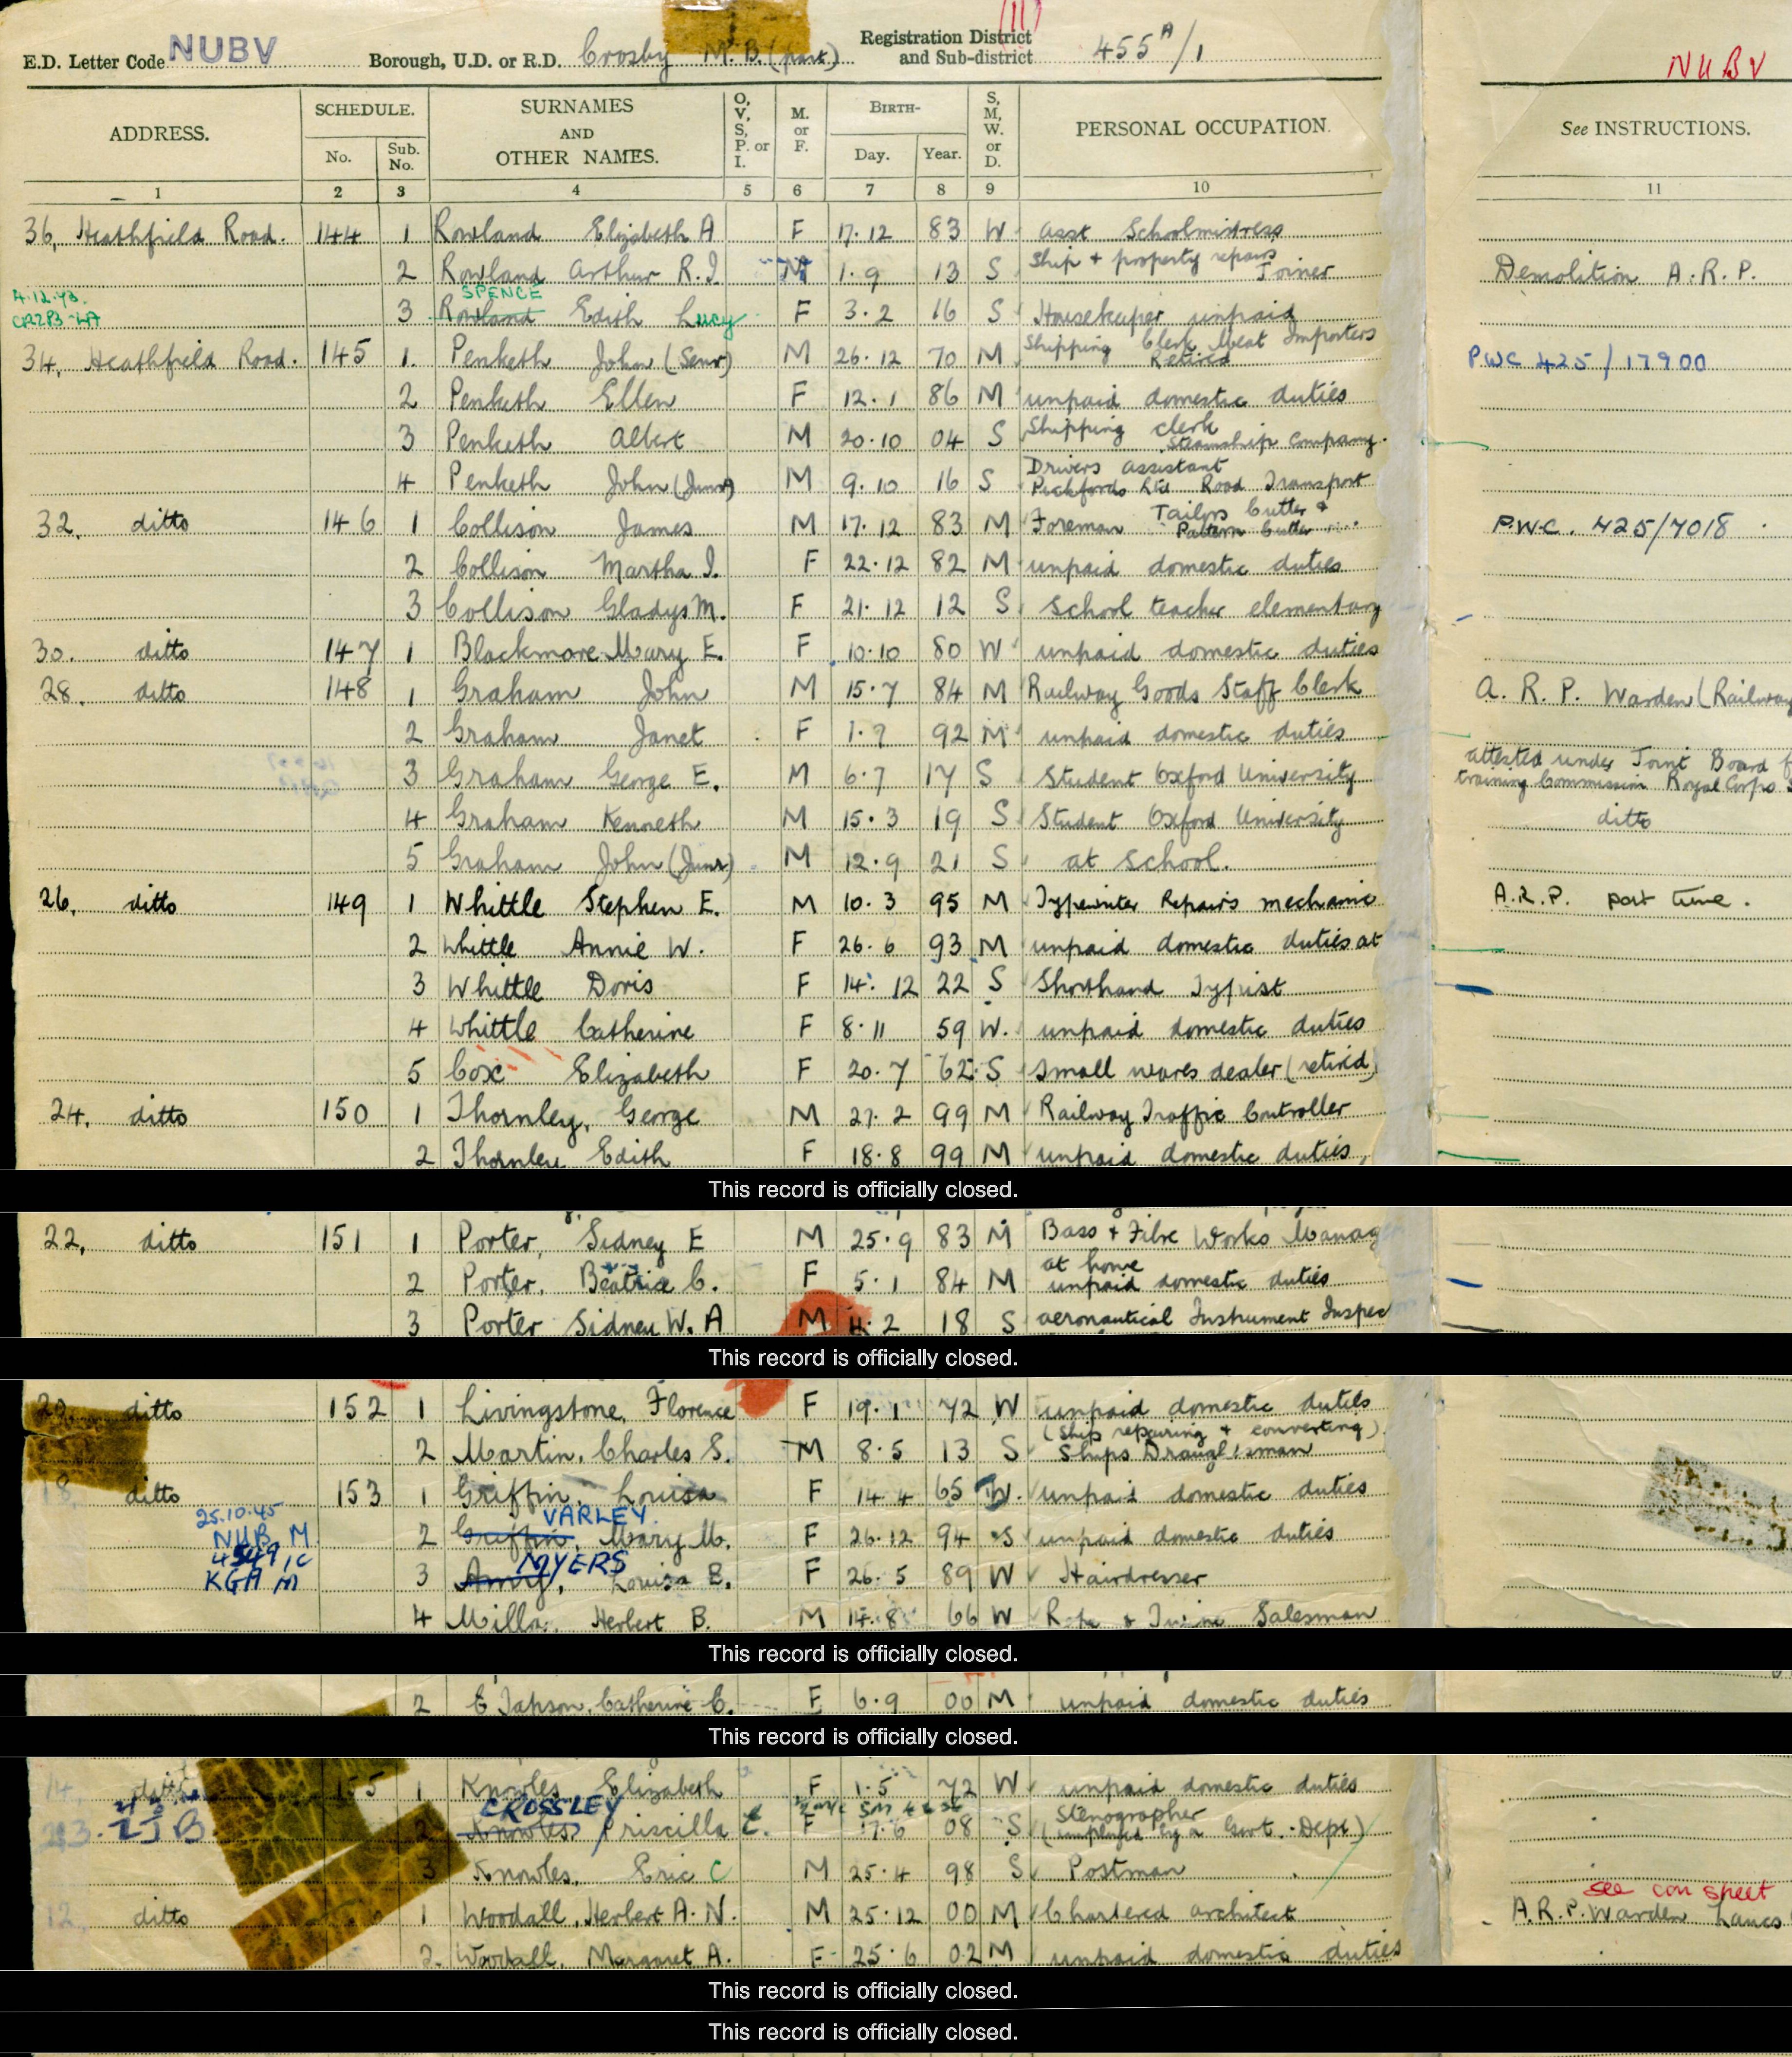 E.D. Letter Code NUBV Borough, U.D. or R.D. Crosby M.B. (part) Registration District and Sub-district 455A/1
NUBV
ADDRESS. SCHEDULE. No. Sub. No. SURNAMES AND OTHER NAMES. O, V, S, P. or I. M. or F. BIRTH- Day. Year. S, M, W. or D. PERSONAL OCCUPATION. See INSTRUCTIONS.
1 2 3 4 5 6 7 8 9 10 11
36, Heathfield Road. 144 1 Rowland Elizabeth A F 17.12 83 W Asst Schoolmistress
2 Rowland Arthur R.I. M 1.9 13 S Ship + property repairs Joiner Demolition A.R.P.
4.12.43. SPENCE
3 Rowland Edith Lucy F 3.2 16 S Housekeeper unpaid
34, Heathfield Road. 145 1. Penketh John (Senr) M 26.12 70 M Shipping Clerk Meat Importers Retired PWC 425/17900
2 Penketh Ellen F 12.1 86 M unpaid domestic duties
3 Penketh Albert M 20.10 04 S Shipping clerk Steamship Company.
4 Penketh John (Junr) M 9.10 16 S Drivers assistant Pickfords Ltd Road Transport
32. ditto 146 1 Collison James M 17.12 83 M Foreman Tailors Cutter & Pattern Cutter P.W.C. 425/7018
2 Collison Martha I. F 22.12 82 M unpaid domestic duties
3 Collison Gladys M. F 21.12 12 S School teacher elementary
30. ditto 147 1 Blackmore Mary E. F 10.10 80 W unpaid domestic duties
28. ditto 148 1 Graham John M 15.7 84 M Railway Goods Staff Clerk A.R.P. Warden (Railway
2 Graham Janet F 1.7 92 M unpaid domestic duties
3 Graham George E. M 6.7 17 S Student Oxford University attested under Joint Board
training Commission Royal Corps S
4 Graham Kenneth M 15.3 19 S Student Oxford University ditto
5 Graham John (Junr) M 12.9 21 S at school.
26, ditto 149 1 Whittle Stephen E. M 10.3 95 M Typewriter Repairs mechanic A.R.P. part time.
2 Whittle Annie W. F 26.6 93 M unpaid domestic duties at
3 Whittle Doris F 14.12 22 S Shorthand Typist
4 Whittle Catherine F 8.11 59 W. unpaid domestic duties
5 Cox Elizabeth F 20.7 62 S Small wares dealer (retired)
24, ditto 150 1 Thornley, George M 27.2 99 M Railway Traffic Controller
2 Thornley Edith F 18.8 99 M unpaid domestic duties,
This record is officially closed.
22, ditto 151 1 Porter, Sidney E M 25.9 83 M Bass + Fibre Works Manag
2 Porter, Beatrice C. F 5.1 84 M at home unpaid domestic duties
3 Porter Sidney W. A M 4.2 18 S aeronautical Instrument Inspec
This record is officially closed.
ditto 152 1 Livingstone, Florence F 19.1 72 W unpaid domestic duties
2 Martin, Charles S. M 8.5 13 S (Ship repairing & converting) Ships Draughtsman
18, ditto 153 1 Griffin, Louisa F 14.4 65 W. unpaid domestic duties
25.10.45 VARLEY
NUB M 2 Griffin, Mary M. F 26.12 94 S unpaid domestic duties
MYERS
KGA M 3 Louisa E. F 26.5 89 W Hairdresser
4 Herbert B. M 14.8 66 W Rope & Twine Salesman
This record is officially closed.
2 Catherine C. F 6.9 00 M unpaid domestic duties
This record is officially closed.
14, ditto 155 1 Knowles Elizabeth F 1.5 72 W unpaid domestic duties
CROSSLEY
2 Knowles, Priscilla E. F 17.6 08 S Stenographer (employed by a Govt. Dept)
3 Knowles, Eric C M 25.4 98 S Postman
see con sheet
12, ditto 1 Woodall, Herbert A. N. M 25.12 00 M Chartered architect A.R.P. Warden Lancs
2. Woodall, Margaret A. F 25.6 02 M unpaid domestic duties
This record is officially closed.
This record is officially closed.